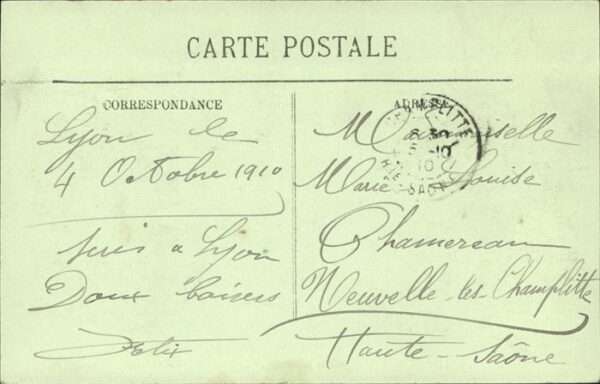 CARTE POSTALE
CORRESPONDANCE
Lyon le
4 Octobre 1910
suis à Lyon
Doux baisers
Felix
ADRESSE
CHAMPLITTE
6 30
5 -10
10
HTE SAONE
Mademoiselle
Marie Louise
Chamereau
Neuvelle-les-Champlitte
Haute-Saône